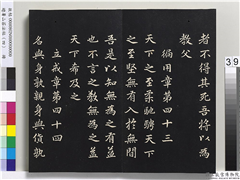 者不得其死吾將以為
教父
徧用章第四十三
天下之至柔馳騁天下
之至堅無有入於無間
吾是以知無為之有益
也不言之教無為之益
天下希及之
立戒章第四十四
名與身孰親身與貨孰
39